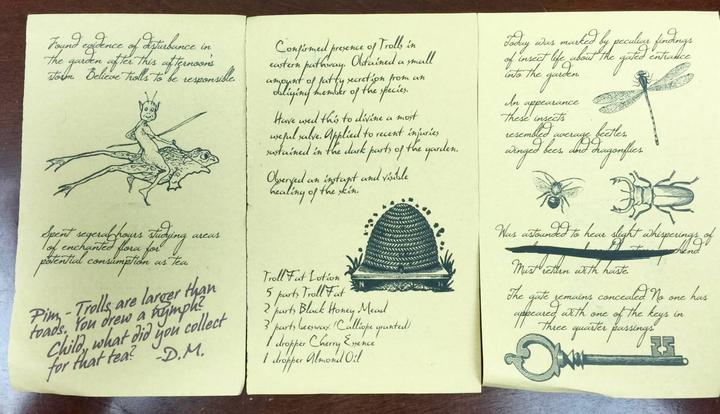 Found evidence of disturbance in
the garden after this afternoon's
storm. Believe trolls to be responsible.
Spent several hours studying areas
of enchanted flora for
potential consumption as tea.
Pim, - Trolls are larger than
toads. You drew a nymph?
Child, what did you collect
for that tea? -D.M.
Confirmed presence of Trolls in
eastern pathway. Obtained a small
amount of fatty secretion from an
obliging member of the species.
Have used this to divine a most
useful salve. Applied to recent injuries
sustained in the dark parts of the garden.
Observed an instant and visible
healing of the skin.
Troll Fat Lotion
5 parts Troll Fat
2 parts Black Honey Mead
3 parts beeswax (Calliope granted)
1 dropper Cherry Essence
1 dropper Almond Oil
Today was marked by peculiar findings
of insect life about the gated entrance
into the garden.
An appearance
these insects
resembled average beetles,
winged bees, and dragonflies.
Was astounded to hear slight whisperings of
Must return with haste.
The gate remains concealed. No one has
appeared with one of the keys in
three quarter passings.